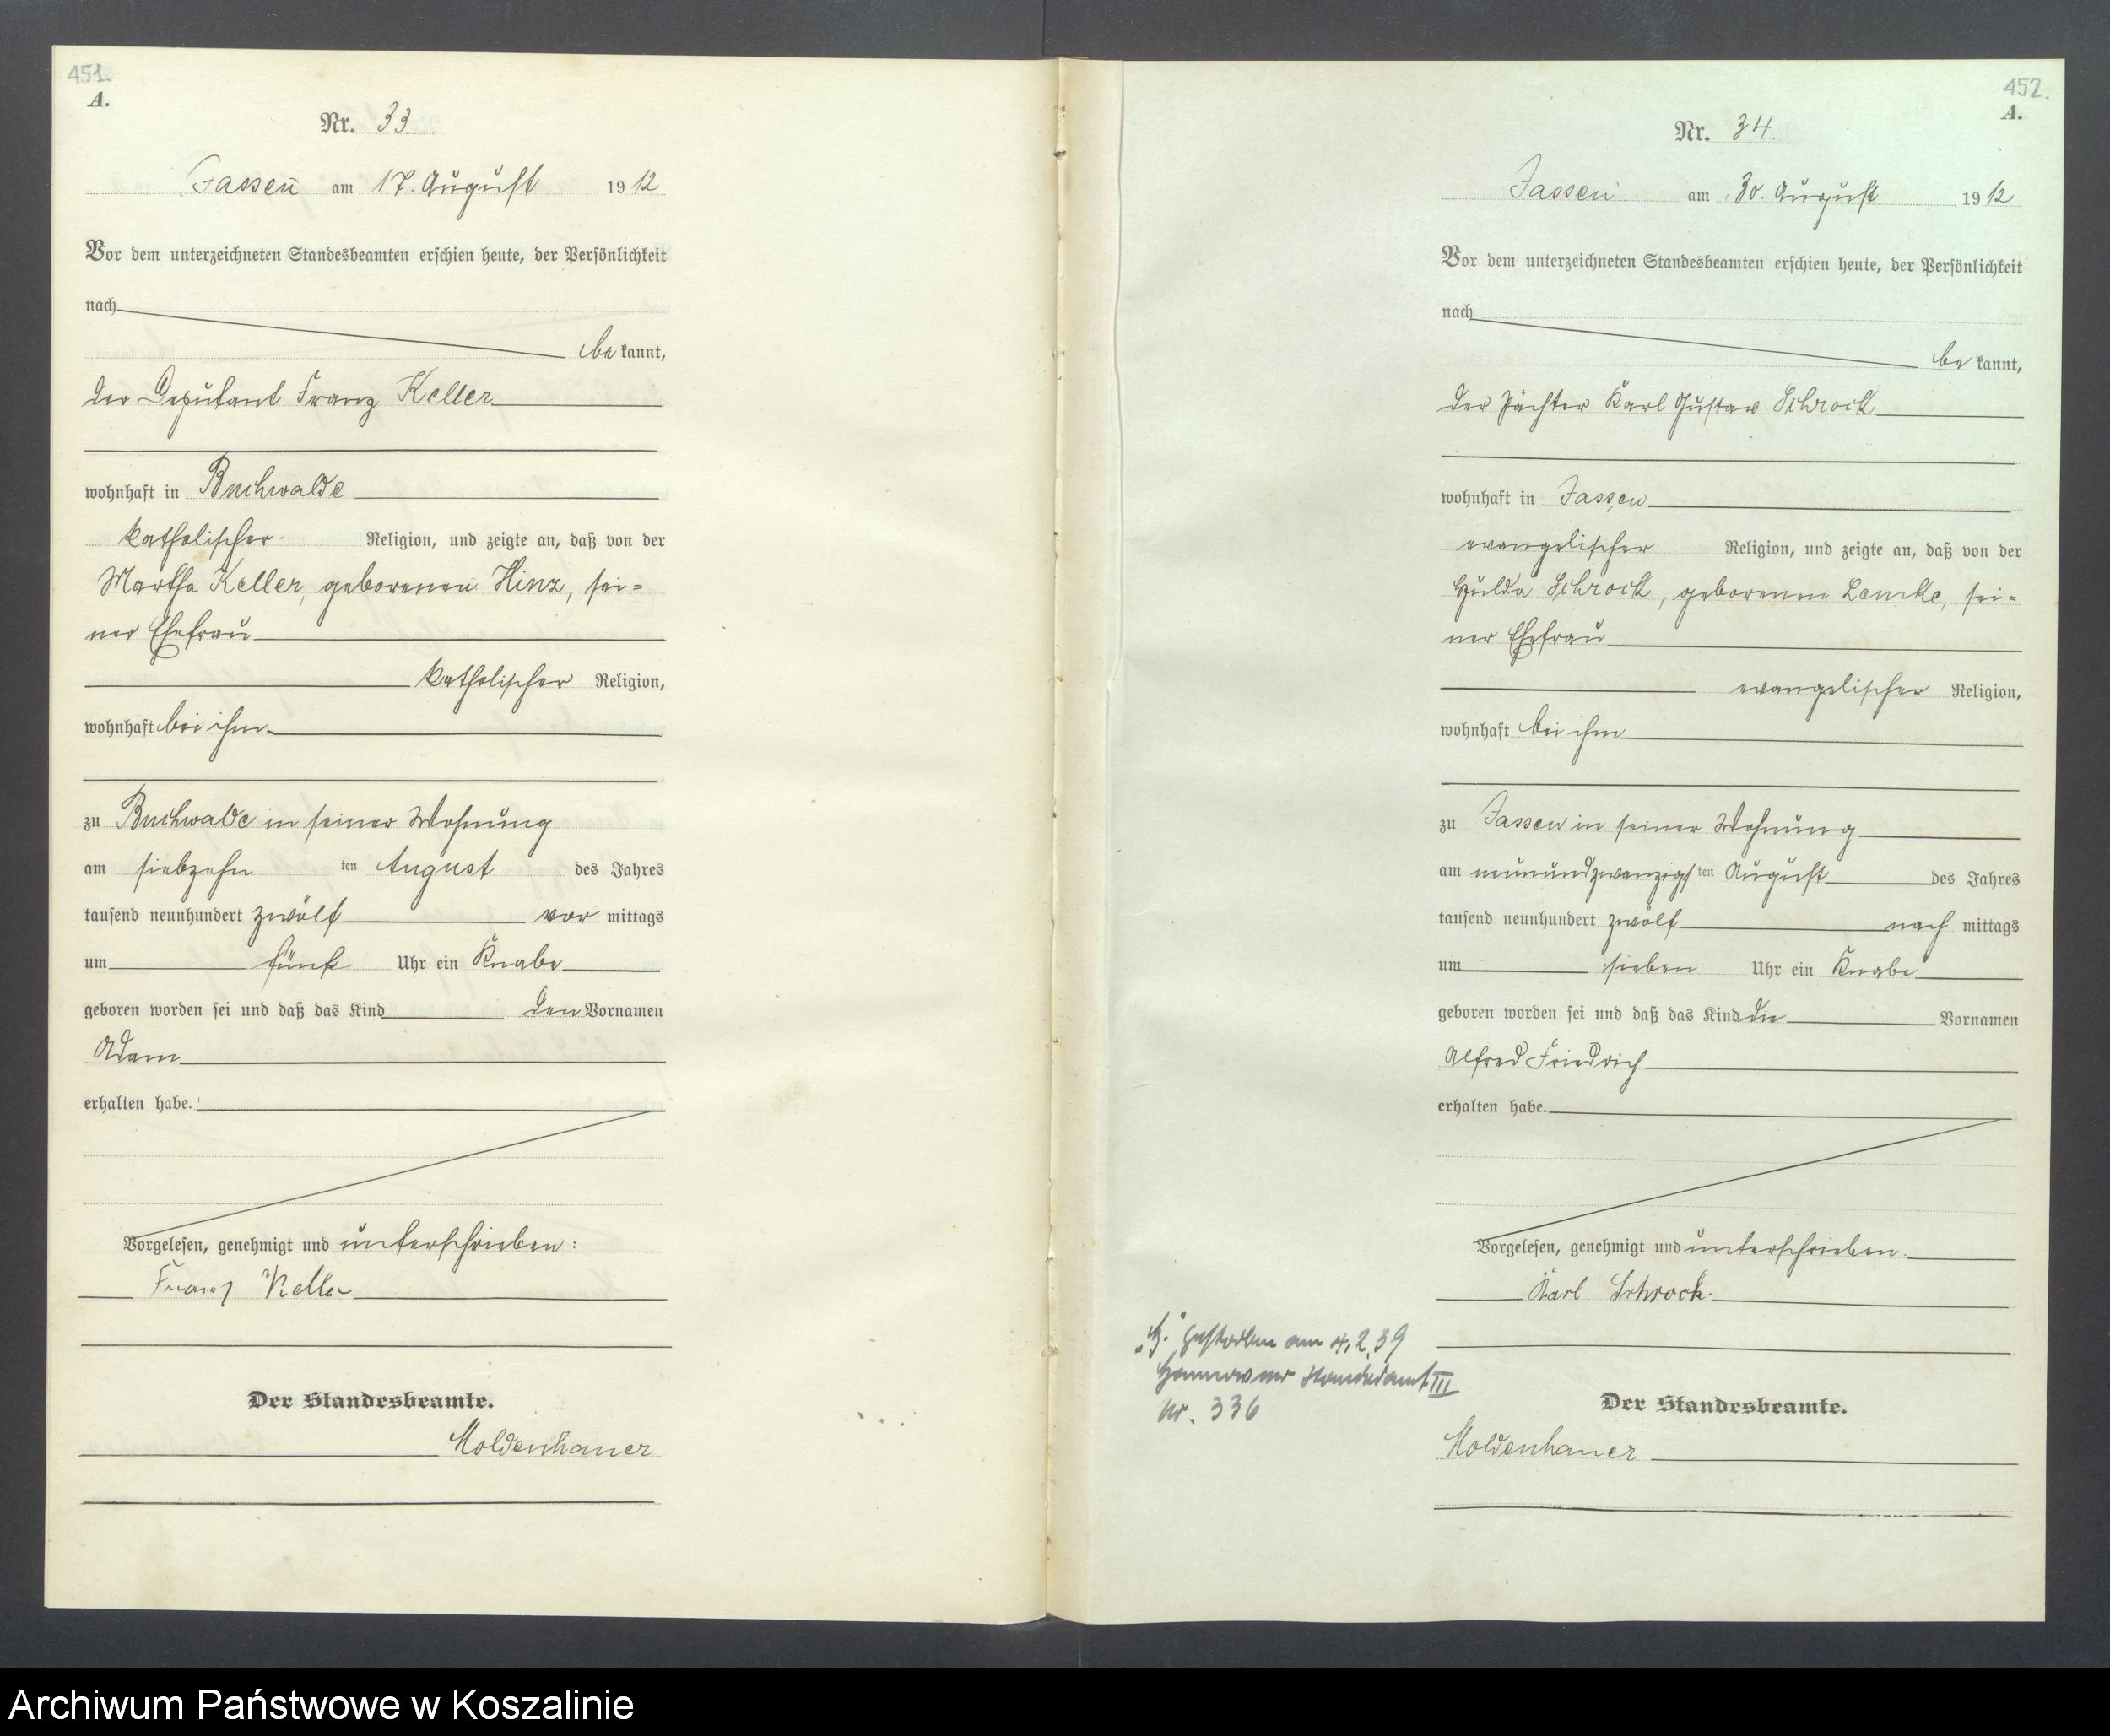 451.
A.
Nr. 33
Jassen am 17. August 1912
Vor dem unterzeichneten Standesbeamten erschien heute, der Persönlichkeit
nach
be kannt,
der Deputant Franz Keller
wohnhaft in Buchwalde
katholischer Religion, und zeigte an, daß von der
Martha Keller, geborenen Hinz, sei=
ner Ehefrau
katholischer Religion,
wohnhaft bei ihm
zu Buchwalde in seiner Wohnung
am siebzehn ten August des Jahres
tausend neunhundert zwölf vor mittags
um fünf Uhr ein Knabe
geboren worden sei und daß das Kind den Vornamen
Adam
erhalten habe.
Vorgelesen, genehmigt und unterschrieben:
Franz Keller
Der Standesbeamte.
Moldenhauer
452.
A.
Nr. 34.
Jassen am 30. August 1912
Vor dem unterzeichneten Standesbeamten erschien heute, der Persönlichkeit
nach
be kannt,
der Pächter Karl Gustav Schrock
wohnhaft in Jassen
evangelischer Religion, und zeigte an, daß von der
Hulda Schrock, geborenen Lemke, sei=
ner Ehefrau
evangelischer Religion,
wohnhaft bei ihm
zu Jassen in seiner Wohnung
am neunundzwanzigs ten August des Jahres
tausend neunhundert zwölf nach mittags
um sieben Uhr ein Knabe
geboren worden sei und daß das Kind die Vornamen
Alfred Friedrich
erhalten habe.
Vorgelesen, genehmigt und unterschrieben.
Karl Schrock.
"H." gestorben am 4.2.39
Hannover Standesamt III
Nr. 336
Der Standesbeamte.
Moldenhauer
Archiwum Państwowe w Koszalinie